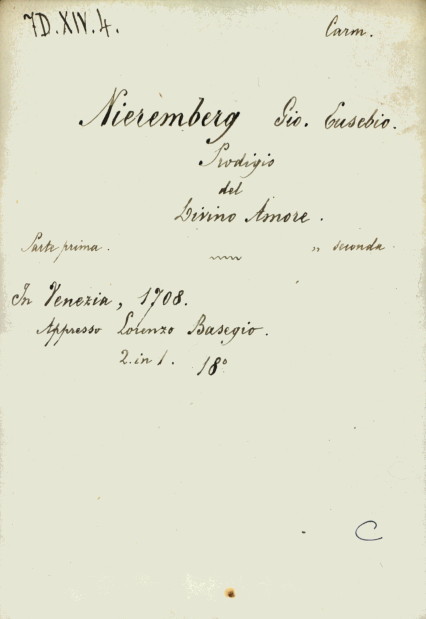 7D.XIV.4. Carm.
Nieremberg Gio. Eusebio.
Prodigio
del
Divino Amore.
Parte prima. " seconda.
In Venezia, 1708.
Appresso Lorenzo Basegio.
2. in 1. 18°
C